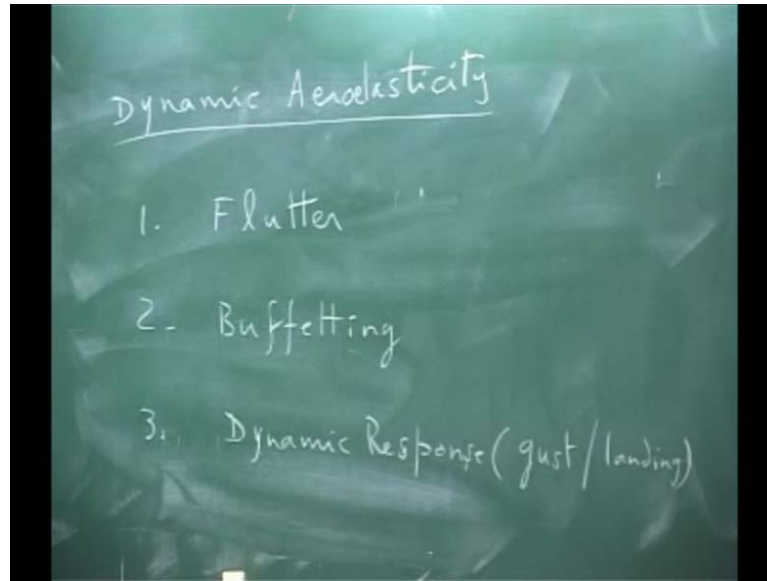 Dynamic Aeroelasticity
1. Flutter
2. Buffetting
3. Dynamic Response (gust/landing)